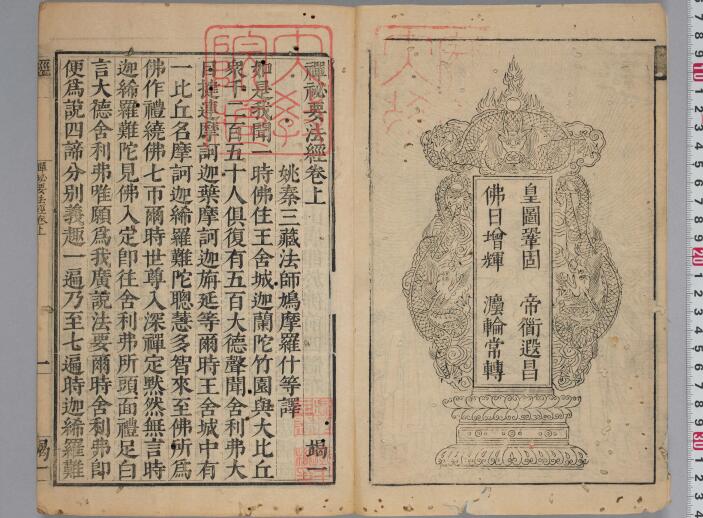 皇圖鞏固　帝衟遐昌
佛日增輝　灋輪常轉
禪祕要法經卷上　竭一
姚秦三藏法師鳩摩羅什等譯
如是我聞一時佛住王舍城迦蘭陀竹園與大比丘
衆千二百五十人俱復有五百大德聲聞舍利弗大
目揵連摩訶迦葉摩訶迦旃延等爾時王舍城中有
一比丘名摩訶迦絺羅難陀聰慧多智來至佛所爲
佛作禮繞佛七帀爾時世尊入深禪定默然無言時
迦絺羅難陀見佛入定卽往舍利弗所頭面禮足白
言大德舍利弗唯願爲我廣說法要爾時舍利弗卽
便爲說四諦分別義趣一遍乃至七遍時迦絺羅難
經　禪祕要法經卷上　一　竭一
10
20
30